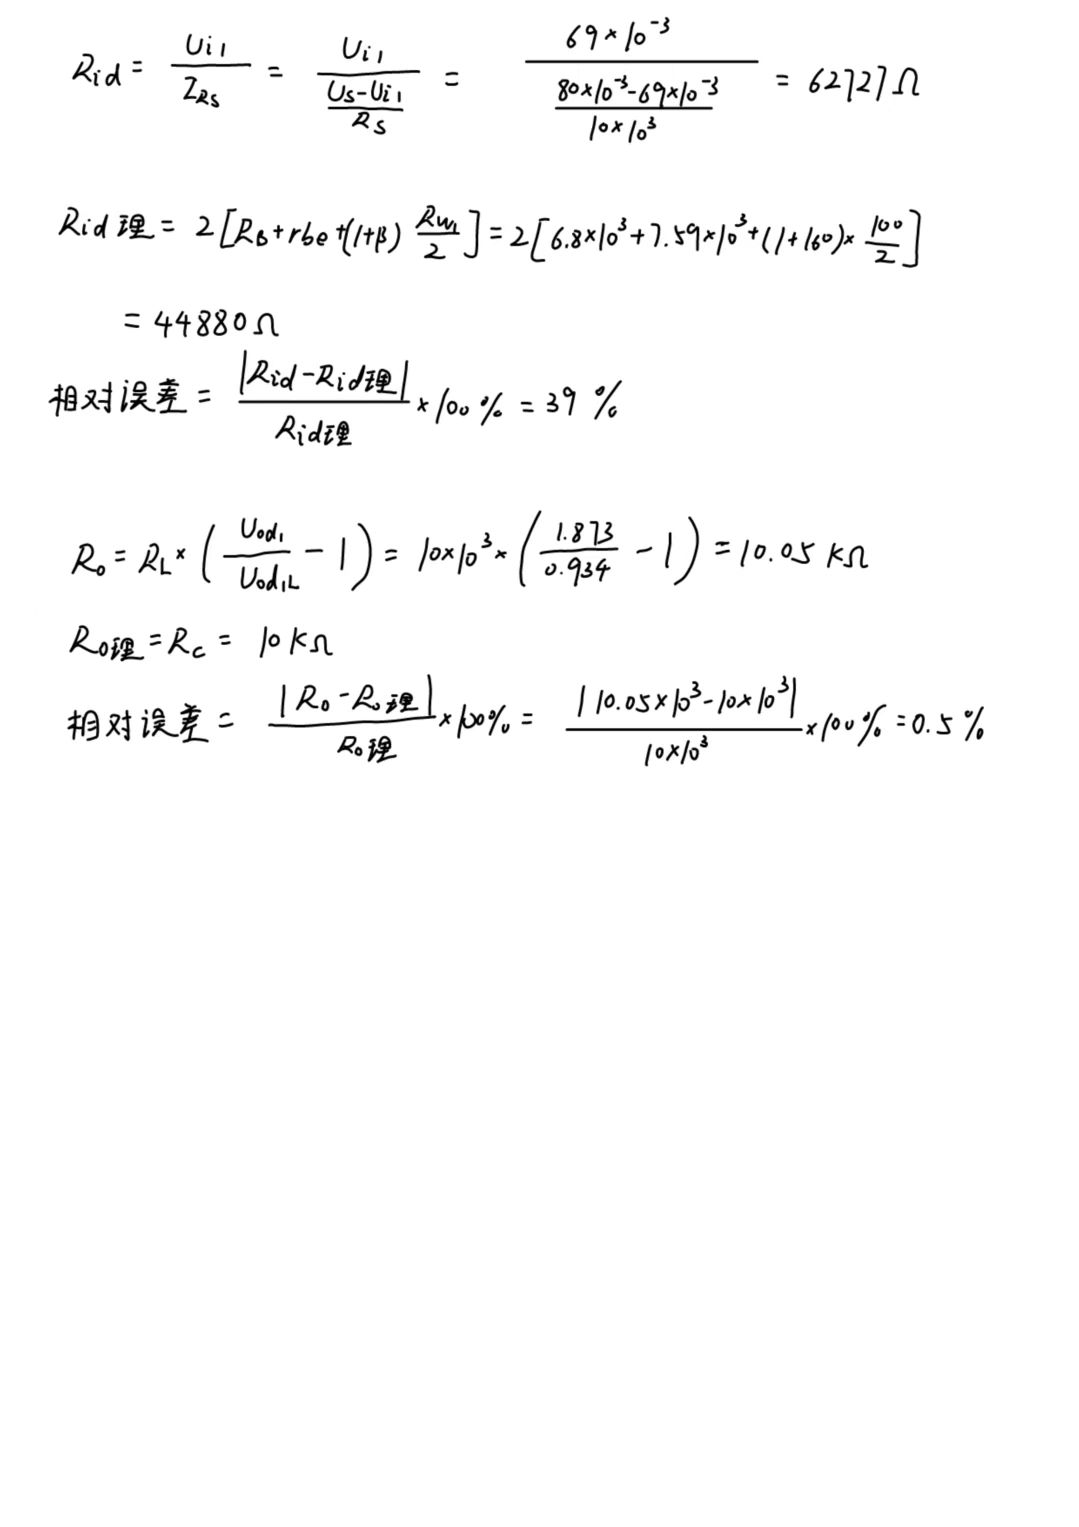 Rid = Ui1/IRs = Ui1/((Us-Ui1)/Rs) = 69×10⁻³/((80×10⁻³-69×10⁻³)/(10×10³)) = 62727Ω
Rid理 = 2[RB+rbe+(1+β) Rw1/2] = 2[6.8×10³+7.59×10³+(1+160)×100/2]
= 44880Ω
相对误差 = |Rid-Rid理|/Rid理 ×100% = 39%
Ro = RL×(Uod1/Uod1L - 1) = 10×10³×(1.873/0.934 - 1) = 10.05 kΩ
Ro理 = Rc = 10kΩ
相对误差 = |Ro-Ro理|/Ro理 ×100% = |10.05×10³-10×10³|/(10×10³) ×100% = 0.5%